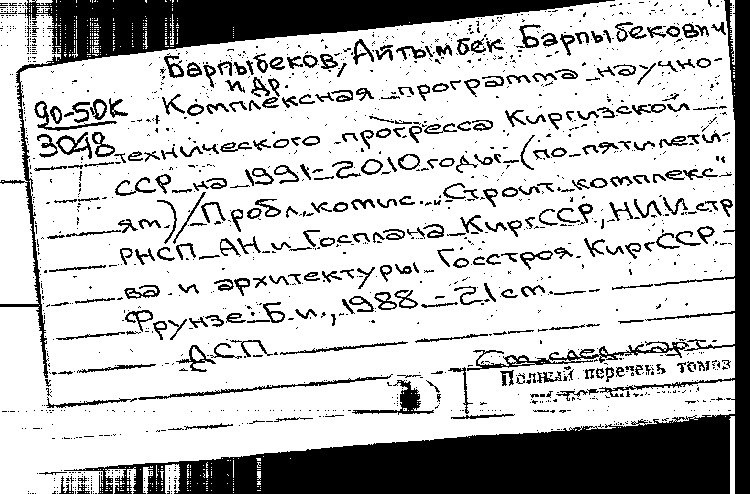 Барпыбеков, Айтымбек Барпыбекович
и др.
90-5DK
3048
Комплексная программа научно-
технического прогресса Киргизской
ССР на 1991-2010 годы (по пятилети-
ям) / Пробл. комис. „Строит. комплекс"
РНСП АН и Госплана КиргССР, НИИ стр-
ва и архитектуры Госстроя КиргССР.
Фрунзе: Б.и., 1988. - 21 cm.
ДСП
См. след. карт.
Полный перечень томов